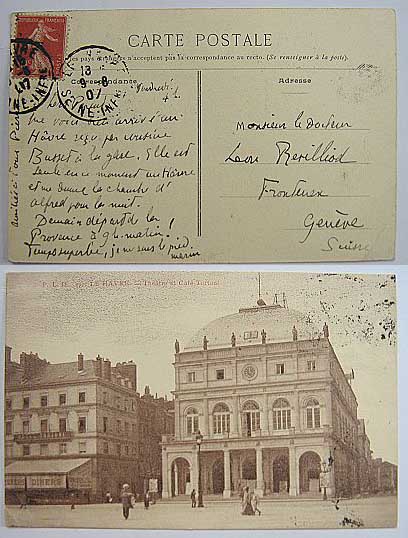 CARTE POSTALE
pays étrangers n'acceptent pas la correspondance au recto. (Se renseigner à la poste).
Correspondance
Adresse
13
9-8
07
SEINE-INFRE
Vendredi
me voici arrivé s'au
Hâvre reçu par cousine
Busset à la gare. Elle est
seule en ce moment au Hâvre
et me donne la chambre d'
Alfred pour la nuit.
Demain départ de la
Provence à 9 h. matin.
Temps superbe, je me sens le pied
marin
Monsieur le Docteur
Léon Revilliod
Frontenex
Genève
Suisse
LE HAVRE. — Théâtre et Café Tortoni